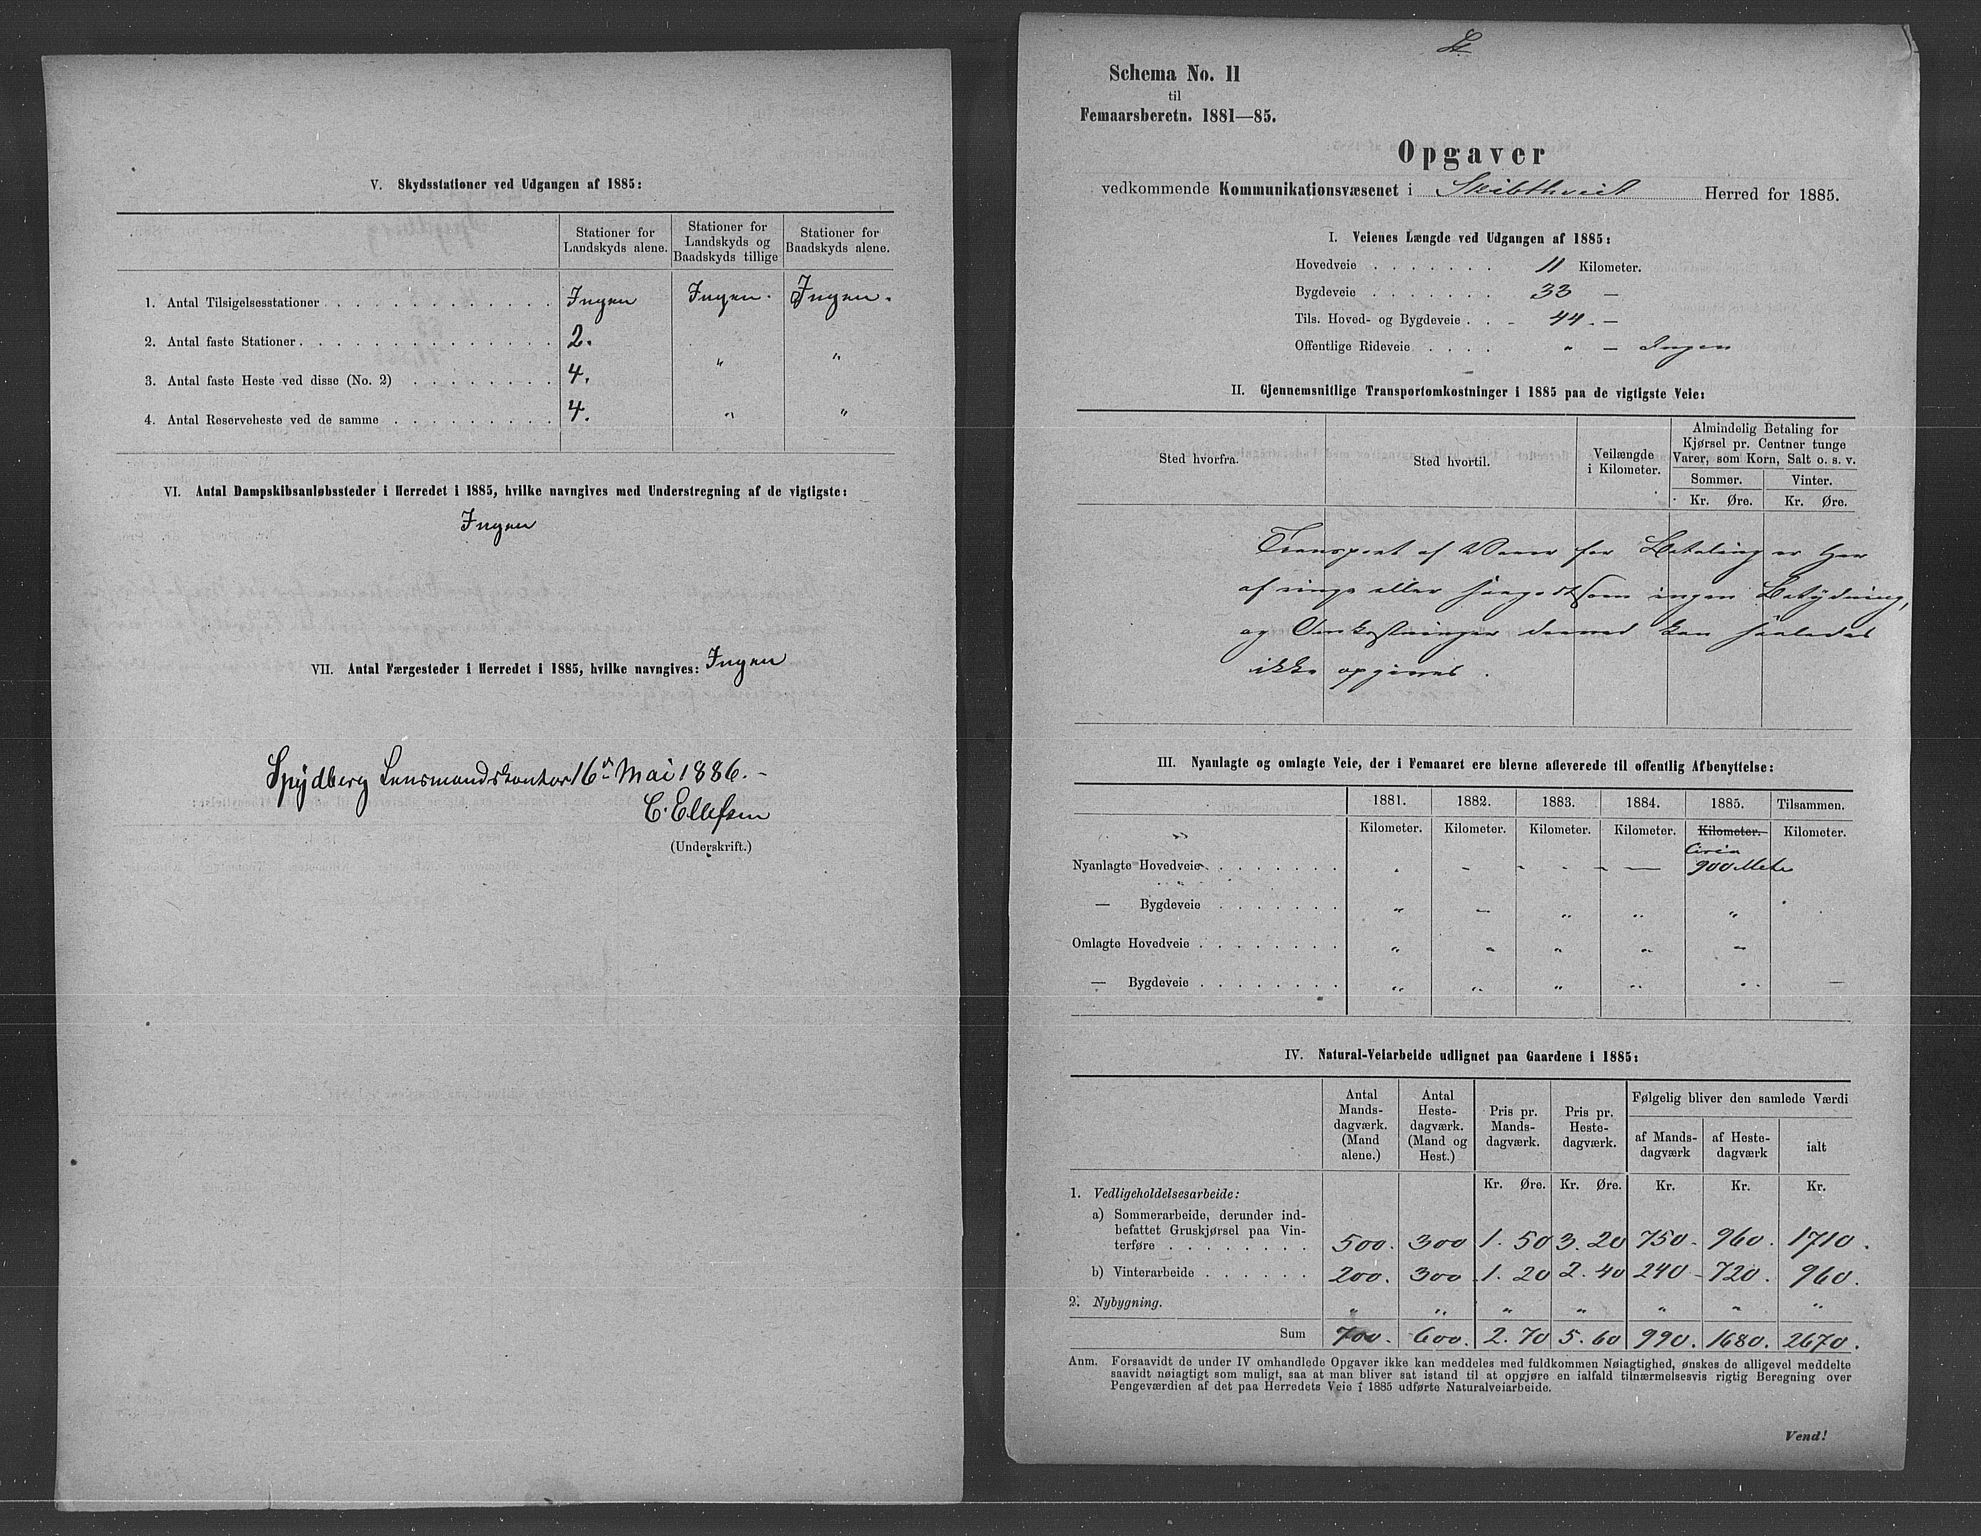 V. Skydsstationer ved Udgangen af 1885:
Stationer for Landskyds alene.
Stationer for Landskyds og Baadskyds tillige
Stationer for Baadskyds alene.
1. Antal Tilsigelsesstationer . . . Ingen Ingen. Ingen.
2. Antal faste Stationer . . . 2.
3. Antal faste Heste ved disse (No. 2) . . . 4. " "
4. Antal Reserveheste ved de samme . . . 4. " "
VI. Antal Dampskibsanløbssteder i Herredet i 1885, hvilke navngives med Understregning af de vigtigste:
Ingen
VII. Antal Færgesteder i Herredet i 1885, hvilke navngives: Ingen
Spydberg Lensmandskontor 16de Mai 1886. -
C. Ellefsen
(Underskrift.)
Schema No. 11
til
Femaarsberetn. 1881—85.
Opgaver
vedkommende Kommunikationsvæsenet i Skibthveit Herred for 1885.
I. Veienes Længde ved Udgangen af 1885:
Hovedveie . . . 11 Kilometer.
Bygdeveie . . . 33 —
Tils. Hoved- og Bygdeveie . . 44. —
Offentlige Rideveie . . . " — Ingen
II. Gjennemsnitlige Transportomkostninger i 1885 paa de vigtigste Veie:
Sted hvorfra.
Sted hvortil.
Veilængde i Kilometer.
Almindelig Betaling for
Kjørsel pr. Centner tunge
Varer, som Korn, Salt o. s. v.
Sommer. Vinter.
Kr. Øre. Kr. Øre.
Transport af Varer for Betaling er her
af ringe eller saagodtsom ingen Betydning,
og Omkostninger derved kan saaledes
ikke opgives.
III. Nyanlagte og omlagte Veie, der i Femaaret ere blevne afleverede til offentlig Afbenyttelse:
1881. 1882. 1883. 1884. 1885. Tilsammen.
Kilometer. Kilometer. Kilometer. Kilometer. Kilometer. Kilometer.
Circa
Nyanlagte Hovedveie . . . 900 Metr
— Bygdeveie . . . " — " " "
Omlagte Hovedveie . . . " " " " "
— Bygdeveie . . . " " " " " —
IV. Natural-Veiarbeide udlignet paa Gaardene i 1885:
Antal Mandsdagværk. (Mand alene.)
Antal Hestedagværk. (Mand og Hest.)
Pris pr. Mandsdagværk.
Pris pr. Hestedagværk.
Følgelig bliver den samlede Værdi
af Mandsdagværk
af Hestedagværk
ialt
Kr. Øre. Kr. Øre. Kr. Kr. Kr.
1. Vedligeholdelsesarbeide:
a) Sommerarbeide, derunder ind-
befattet Gruskjørsel paa Vin-
terføre . . . 500. 300 1. 50 3. 20 750. 960. 1710.
b) Vinterarbeide . . . 200. 300 1. 20 2. 40 240 - 720. 960.
2. Nybygning. " " " " " " "
Sum 700. 600. 2. 70 5. 60 990. 1680. 2670.
Anm. Forsaavidt de under IV omhandlede Opgaver ikke kan meddeles med fuldkommen Nøiagtighed, ønskes de alligevel meddelte
saavidt nøiagtigt som muligt, saa at man bliver sat istand til at opgjøre en ialfald tilnærmelsesvis rigtig Beregning over
Pengeværdien af det paa Herredets Veie i 1885 udførte Naturalveiarbeide.
Vend!